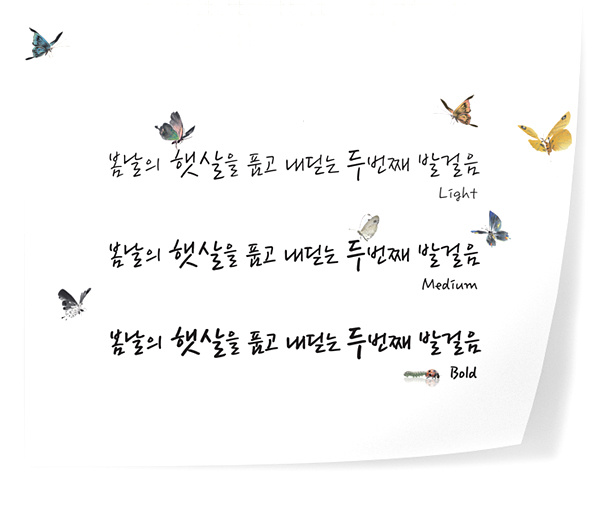 봄날의 햇살을 품고 내딛는 두번째 발걸음
Light
봄날의 햇살을 품고 내딛는 두번째 발걸음
Medium
봄날의 햇살을 품고 내딛는 두번째 발걸음
Bold